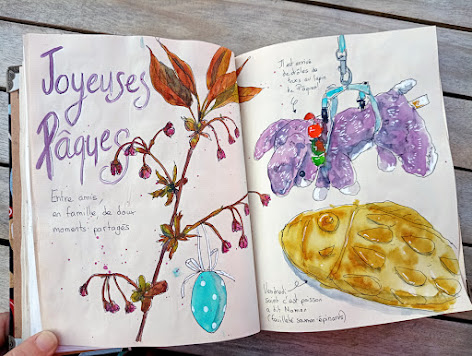 Joyeuses
Pâques
Entre amis,
en famille, de doux
moments partagés
Il est arrivé
de drôles de
au lapin
de Pâques!
Vendredi
Saint c'est poisson
a dit Maman
(feuilleté saumon épinards)